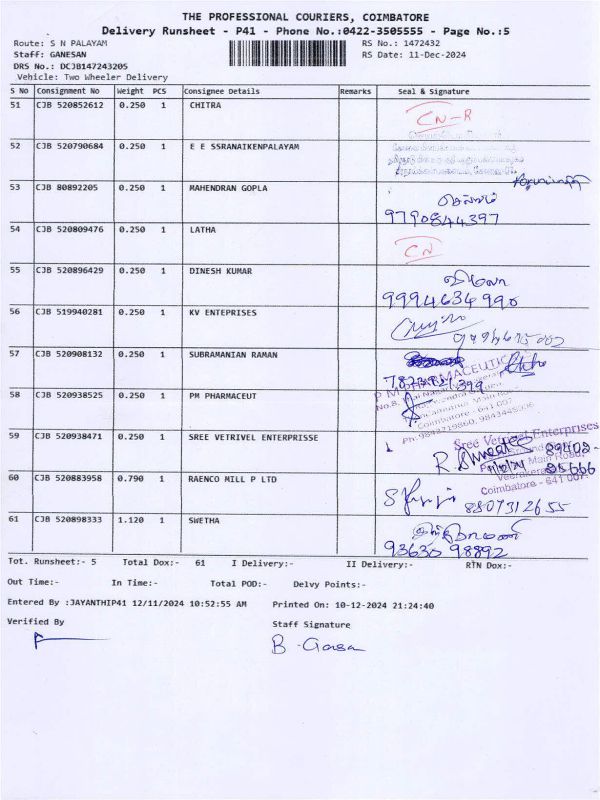 THE PROFESSIONAL COURIERS, COIMBATORE
Delivery Runsheet - P41 - Phone No.:0422-3505555 - Page No.:5
Route: S N PALAYAM RS No.: 1472432
Staff: GANESAN RS Date: 11-Dec-2024
DRS No.: DCJB147243205
Vehicle: Two Wheeler Delivery
S No Consignment No Weight PCS Consignee Details Remarks Seal & Signature
51 CJB 520852612 0.250 1 CHITRA CN-R
52 CJB 520790684 0.250 1 E E SSRANAIKENPALAYAM
53 CJB 80892205 0.250 1 MAHENDRAN GOPLA செல்வம்
9790844397
54 CJB 520809476 0.250 1 LATHA CN
55 CJB 520896429 0.250 1 DINESH KUMAR
9994634990
56 CJB 519940281 0.250 1 KV ENTEPRISES
57 CJB 520908132 0.250 1 SUBRAMANIAN RAMAN
58 CJB 520938525 0.250 1 PM PHARMACEUT
59 CJB 520938471 0.250 1 SREE VETRIVEL ENTERPRISSE Sree Vetrivel Enterprises
Coimbatore - 641 007
60 CJB 520883958 0.790 1 RAENCO MILL P LTD 8807312655
61 CJB 520898333 1.120 1 SWETHA
93630 98892
Tot. Runsheet:- 5 Total Dox:- 61 I Delivery:- II Delivery:- RTN Dox:-
Out Time:- In Time:- Total POD:- Delvy Points:-
Entered By :JAYANTHIP41 12/11/2024 10:52:55 AM Printed On: 10-12-2024 21:24:40
Verified By Staff Signature